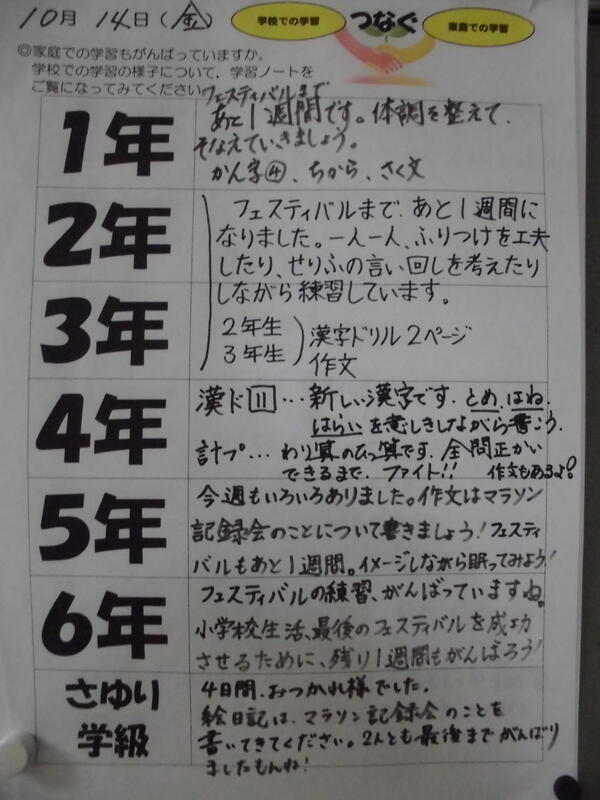 10月 14日(金)
学校での学習 つなぐ 家庭での学習
◎家庭での学習もがんばっていますか。
学校での学習の様子について、学習ノートを
ご覧になってみてください。
1年
フェスティバルまで
あと1週間です。体調を整えて、
そなえていきましょう。
かん字④、ちから、さく文
2年
3年
フェスティバルまで、あと1週間に
なりました。一人一人、ふりつけを工夫
したり、せりふの言い回しを考えたり
しながら練習しています。
2年生
3年生
漢字ドリル2ページ
作文
4年
漢ド11…新しい漢字です。とめ、はね、
はらいを意しきしながら書こう。
計プ…わり算のひっ算です。全問正かい
できるまで、ファイト!! 作文もあるよ!
5年
今週もいろいろありました。作文はマラソン
記録会のことについて書きましょう!フェスティ
バルもあと1週間。イメージしながら眠ってみよう!
6年
フェスティバルの練習、がんばっていますね。
小学校生活、最後のフェスティバルを成功
させるために、残り1週間もがんばろう!
さゆり
学級
4日間、おつかれ様でした。
絵日記は、マラソン記録会のことを
書いてきてください。2人とも最後までがんばり
ましたもんね!